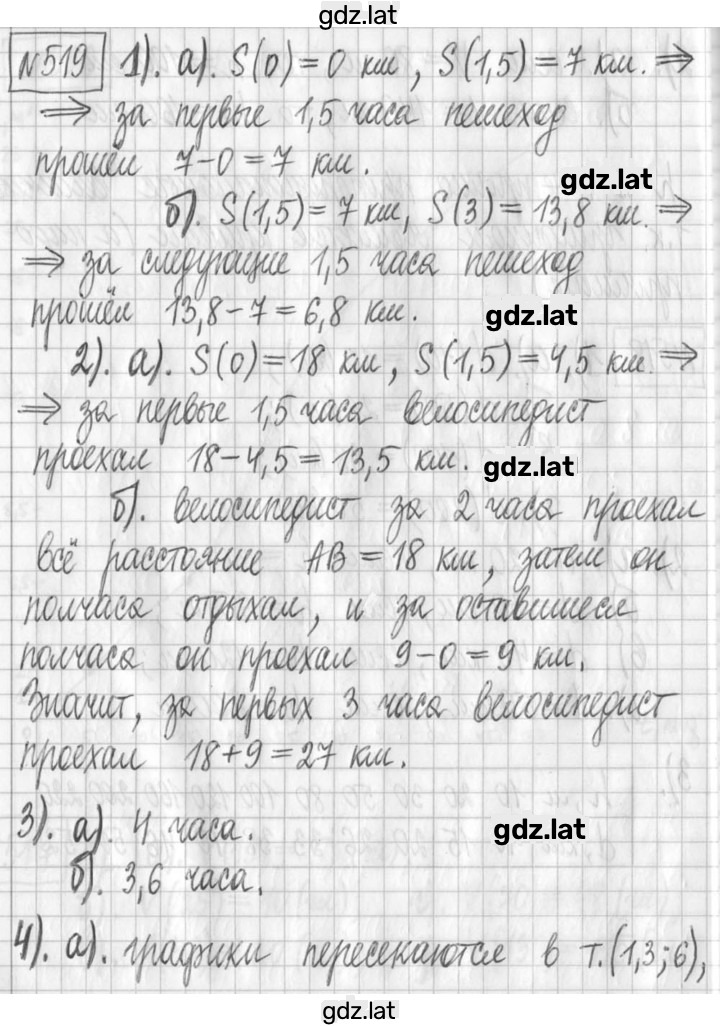 gdz.lat
№519 1). а). S(0)=0 км, S(1,5)=7 км. ⇒
⇒ за первые 1,5 часа пешеход
прошёл 7-0=7 км.
gdz.lat
б). S(1,5)=7 км, S(3)=13,8 км. ⇒
⇒ за следующие 1,5 часа пешеход
прошёл 13,8-7=6,8 км.
gdz.lat
2). а). S(0)=18 км, S(1,5)=4,5 км. ⇒
⇒ за первые 1,5 часа велосипедист
проехал 18-4,5=13,5 км.
gdz.lat
б). велосипедист за 2 часа проехал
всё расстояние AB=18 км, затем он
полчаса отдыхал, и за оставшиеся
полчаса он проехал 9-0=9 км.
Значит, за первых 3 часа велосипедист
проехал 18+9=27 км.
3). а). 4 часа.
gdz.lat
б). 3,6 часа.
4). а). графики пересекаются в т.(1,3;6),
gdz.lat